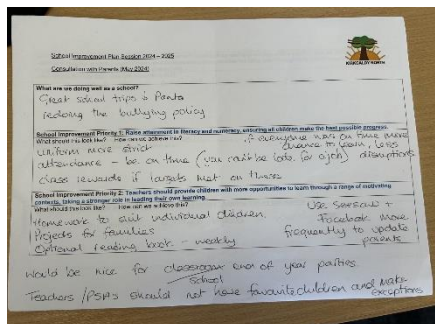 School Improvement Plan Session 2024 – 2025
Consultation with Parents (May 2024)
KIRKCALDY NORTH
What are we doing well as a school?
Great school trips & Pants
redoing the bullying policy
School Improvement Priority 1: Raise attainment in literacy and numeracy, ensuring all children make the best possible progress.
What should this look like? How can we achieve this?
if everyone was on time more
chance to learn, less
disruptions
uniform more strict
attendance - be on time (you can't be late for a job)
class rewards if targets met on times
School Improvement Priority 2: Teachers should provide children with more opportunities to learn through a range of motivating
contexts, taking a stronger role in leading their own learning.
What should this look like? How can we achieve this?
Homework to suit individual children.
Projects for families
Optional reading book - weekly
Use seesaw +
Facebook more
frequently to update
parents
Would be nice for classroom end of year parties.
school
Teachers / PSA's should not have favourite children and make
exceptions